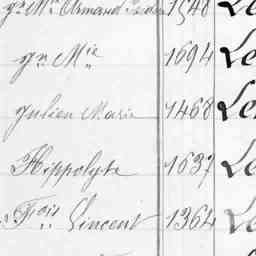 gn Mie Armand 1548 Le
gn Mie 1694 Le
Julien Marie 1468 Le
Hippolyte 1637 Le
Fois Vincent 1364 Le